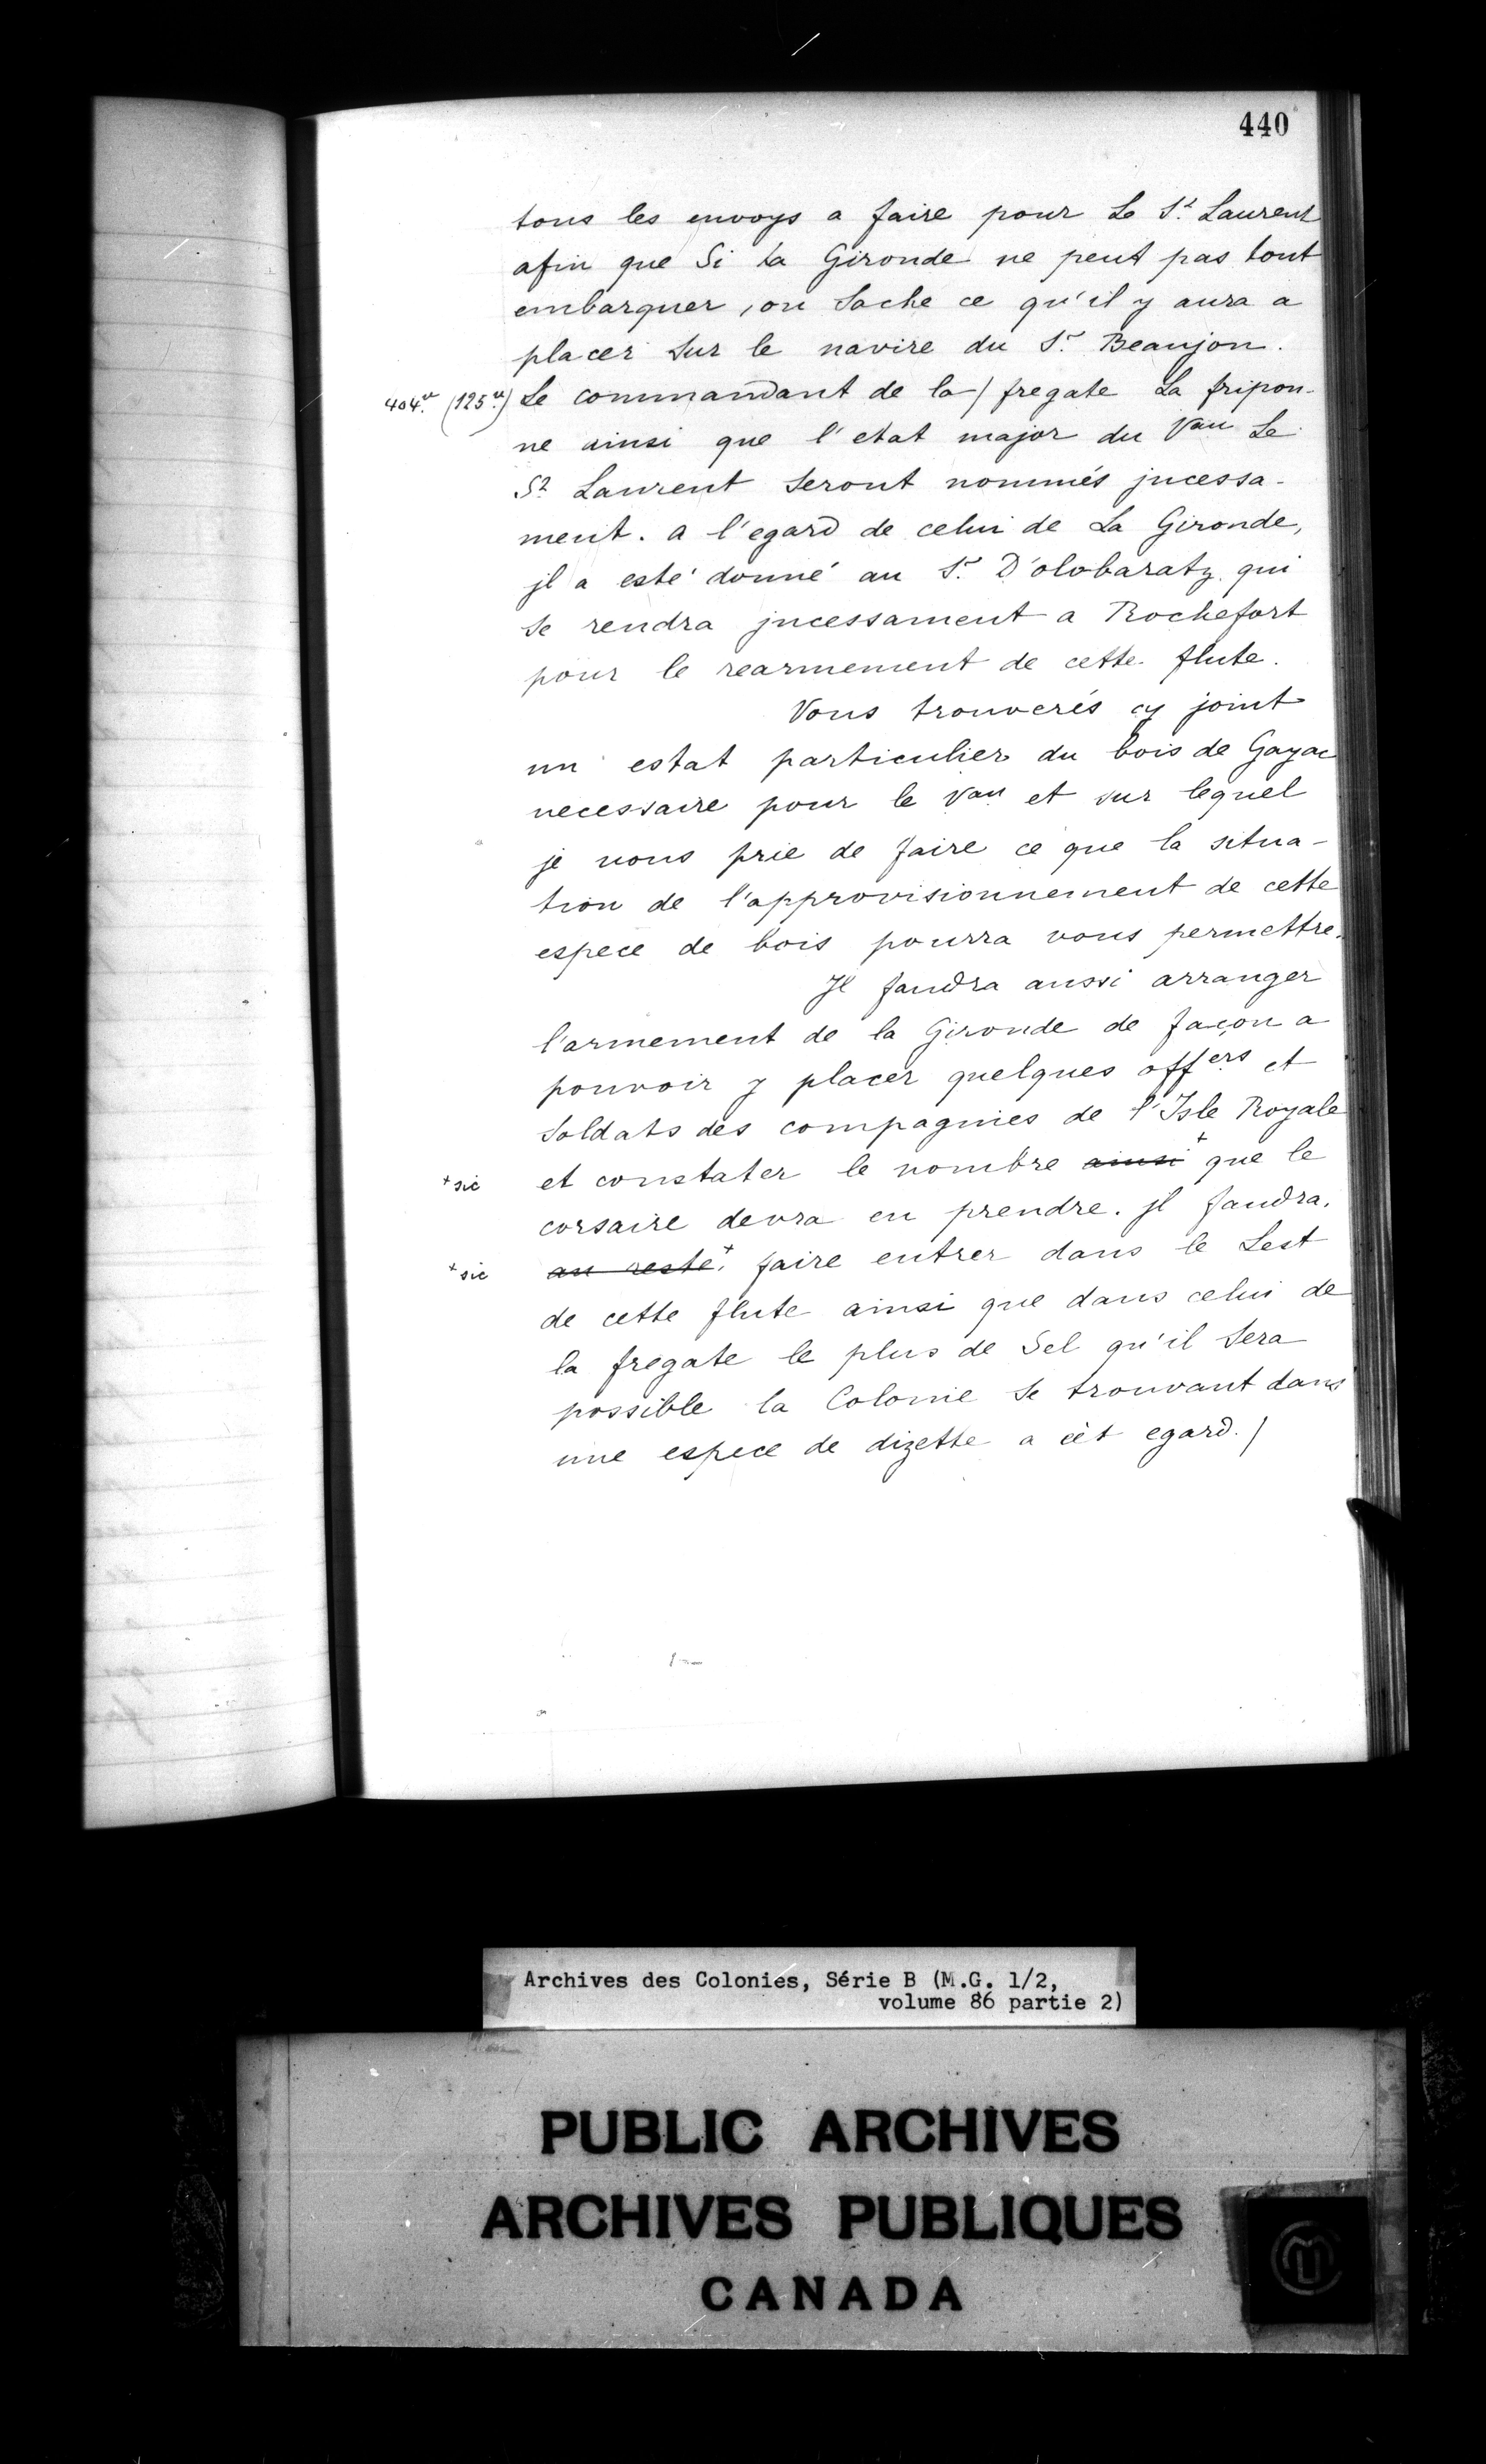 440
tous les envoys a faire pour Le St. Laurent
afin que Si La Gironde ne peut pas tout
embarquer, on Sache ce qu'il y aura a
placer Sur le navire du Sr. Beaujon.
404.vo (125.vo) Le commandant de la / fregate La fripon-
ne ainsi que l'etat major du Vau Le
St. Laurent Seront nommés jncessa-
ment. a l'egard de celui de La Gironde,
jl a esté donné au Sr. D'olobaratz qui
Se rendra jncessament a Rochefort
pour le rearmement de cette flute.
Vous trouverés cy joint
un estat particulier du bois de Gayac
necessaire pour le Vau et sur lequel
je vous prie de faire ce que la situa-
tion de l'approvisionnement de cette
espece de bois pourra vous permettre.
Jl faudra aussi arranger
l'armement de la Gironde de façon a
pouvoir y placer quelques offers et
Soldats des compagnies de l'Isle Royale
+sic et constater le nombre ainsi+ que le
corsaire devra en prendre. jl faudra,
+sic au reste,+ faire entrer dans le Lest
de cette flute ainsi que dans celui de
la fregate le plus de Sel qu'il Sera
possible la Colonie Se trouvant dans
une espece de dizette a cèt egard. /
Archives des Colonies, Série B (M.G. 1/2,
volume 86 partie 2)
PUBLIC ARCHIVES
ARCHIVES PUBLIQUES
CANADA